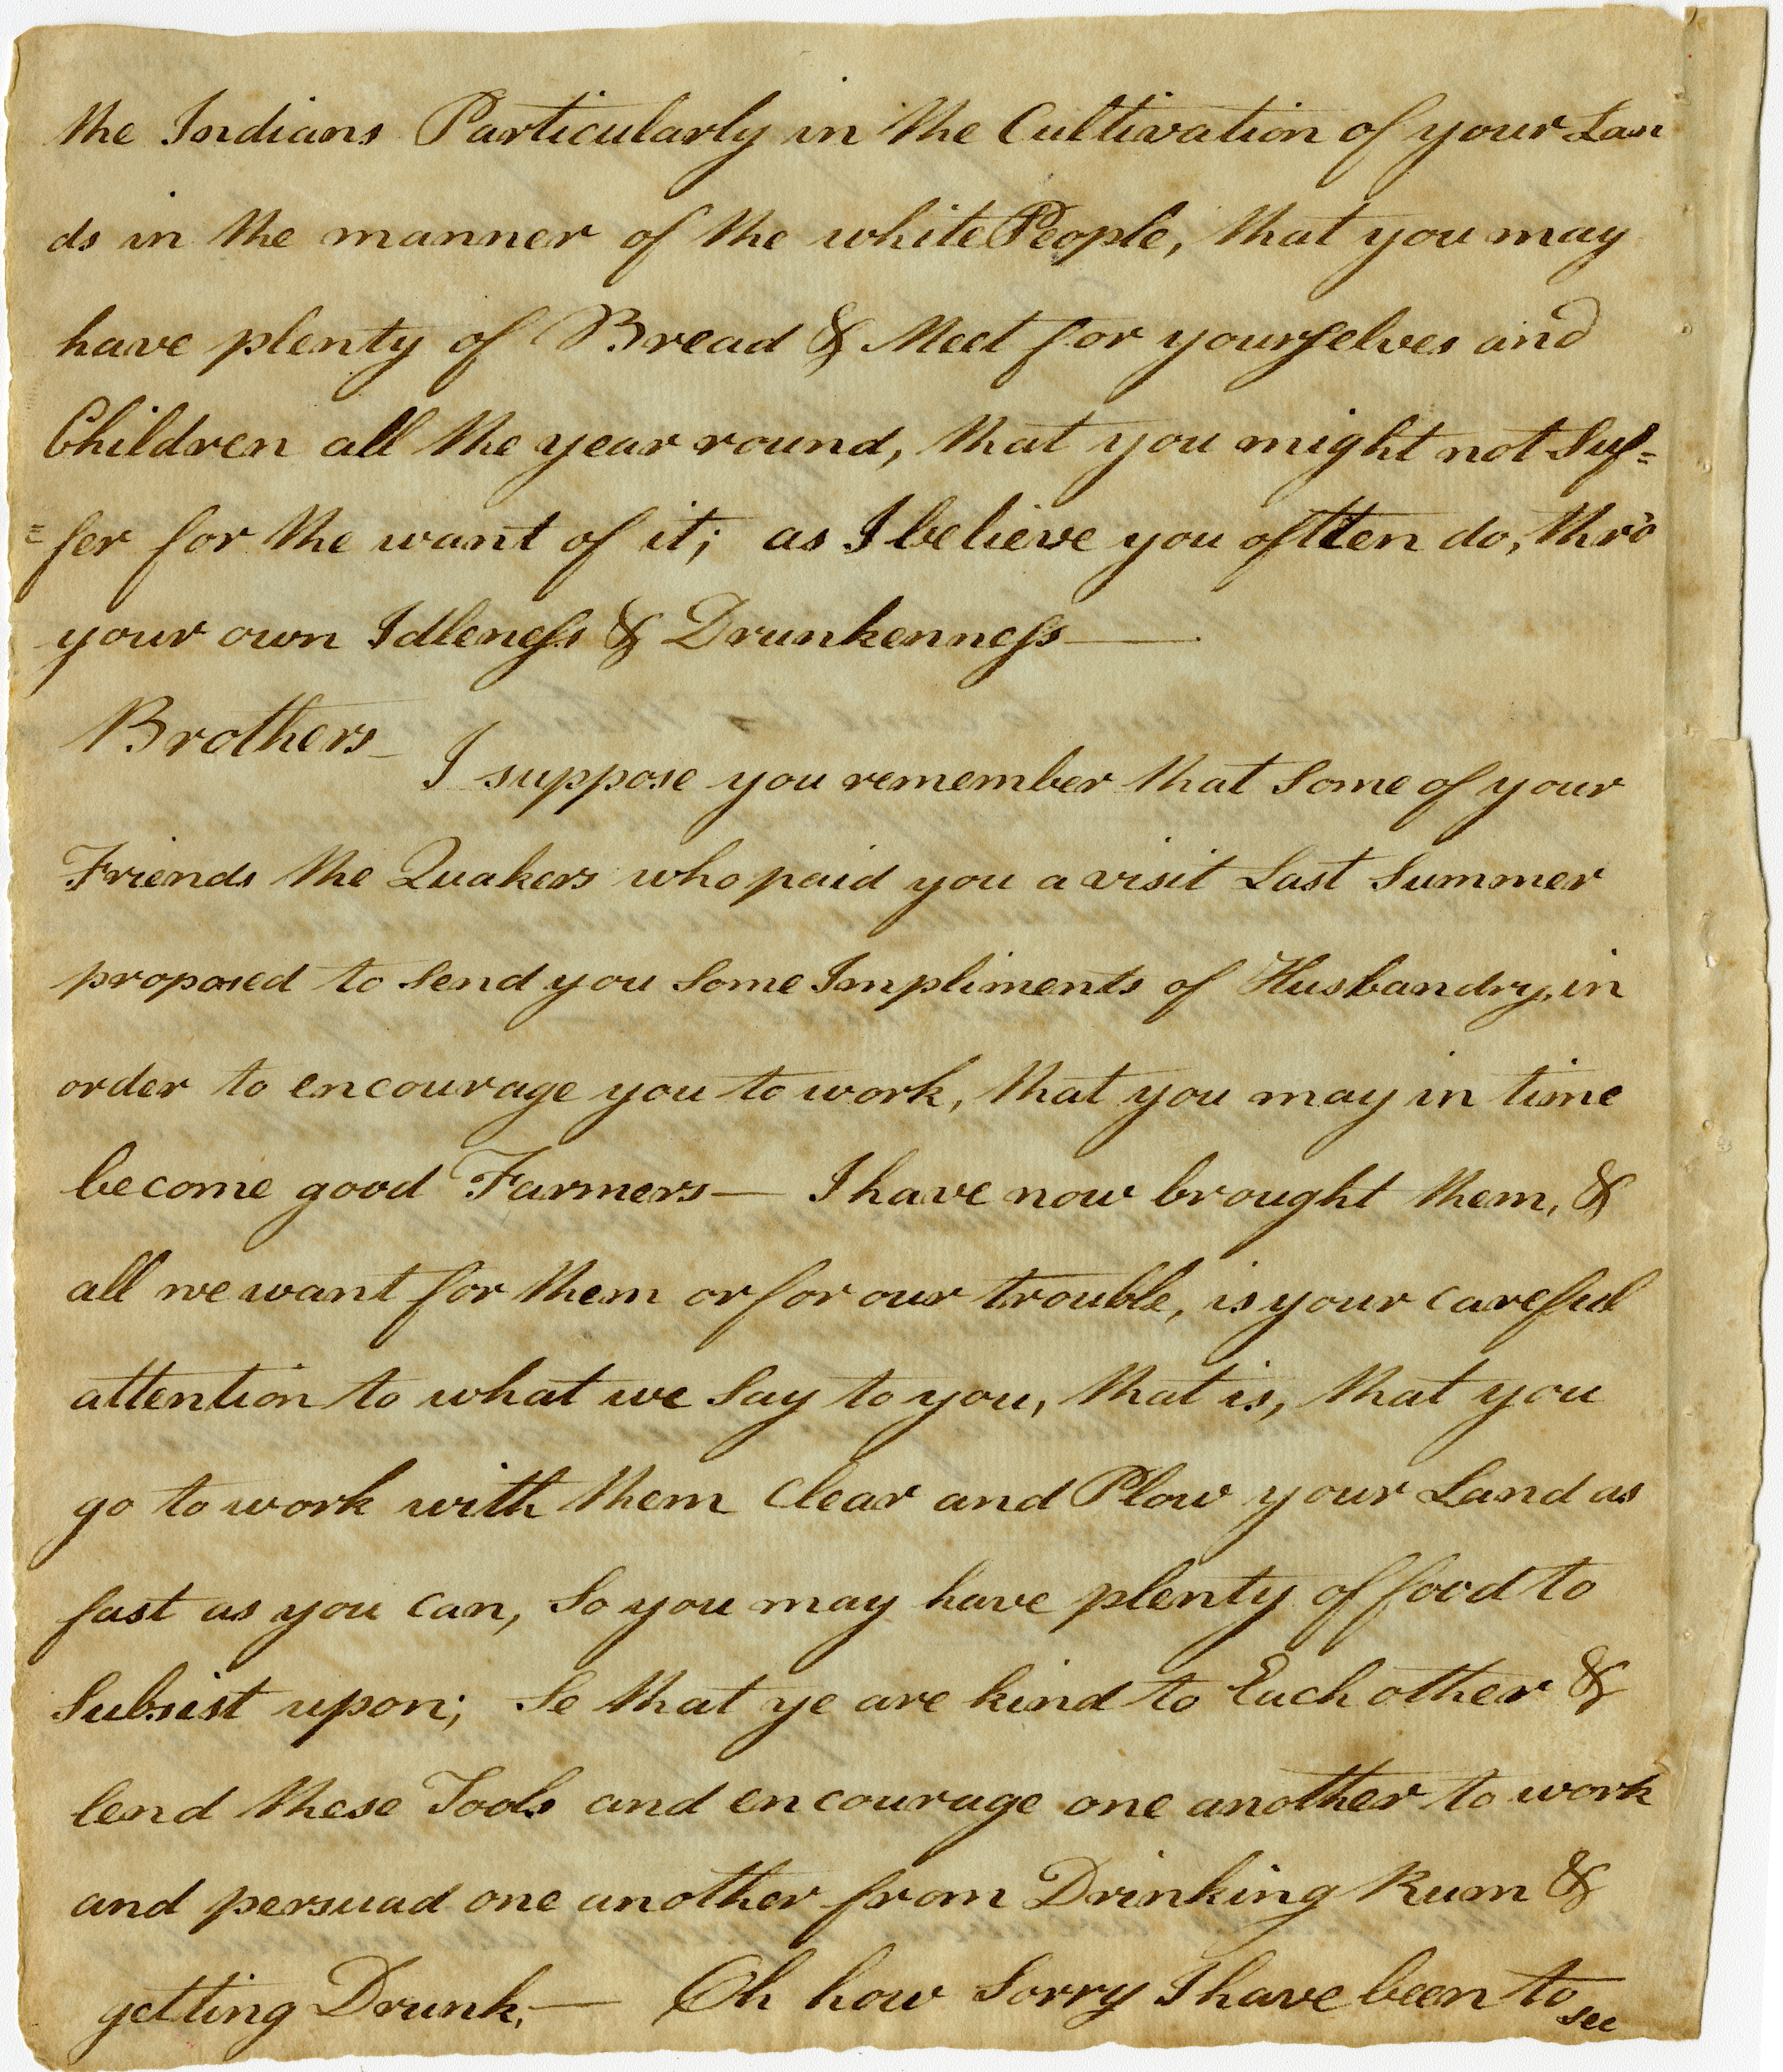 the Indians Particularly in the Cultivation of your Lan
ds in the manner of the white People, that you may
have plenty of Bread & Meet for yourselves and
Children all the year round, that you might not Suf=
=fer for the want of it; as I believe you oftten do, thro'
your own Idleness & Drunkenness —.
Brothers —
I suppose you remember that Some of your
Friends the Quakers who paid you a visit Last Summer
proposed to Send you Some Impliments of Husbandry, in
order to encourage you to work, that you may in time
become good Farmers — I have now brought them, &
all we want for them or for our trouble, is your careful
attention to what we Say to you, that is, that you
go to work with them Clear and Plow your Land as
fast as you can, So you may have plenty of food to
Subsist upon; Se that ye are kind to Each other &
lend these Tools and encourage one another to work
and persuad one another from Drinking Rum &
getting Drunk. — Oh how Sorry I have been to
see